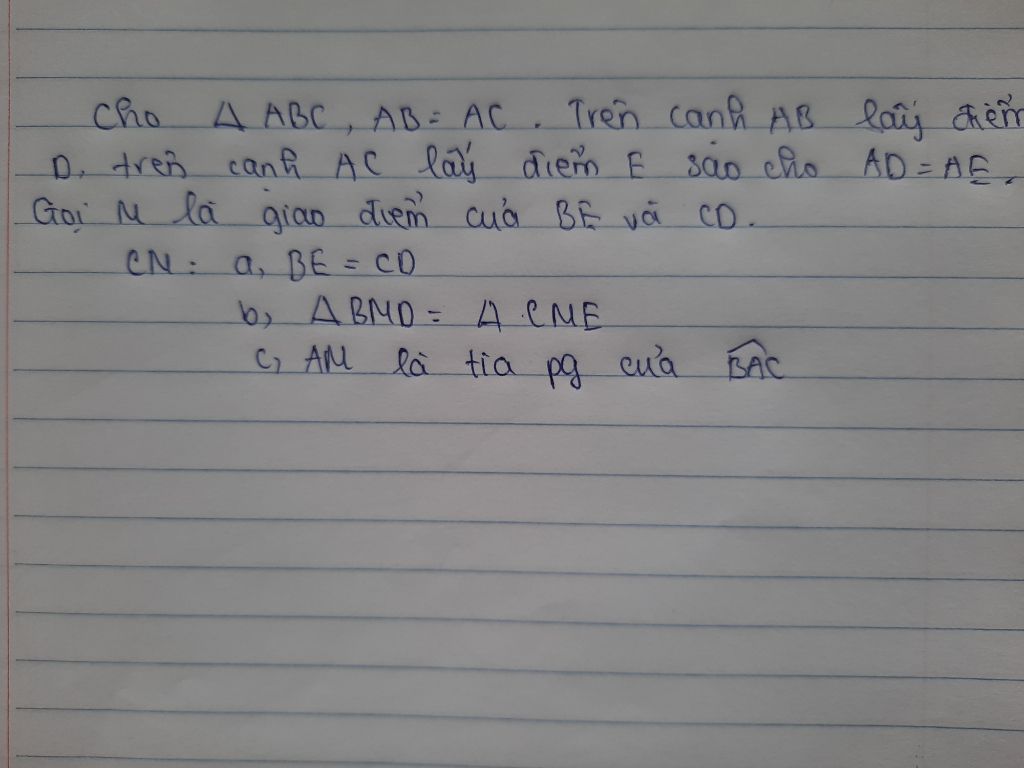 Cho Δ ABC, AB = AC. Trên cạnh AB lấy điểm
D, trên cạnh AC lấy điểm E sao cho AD = AE.
Gọi M là giao điểm của BE và CD.
CM: a, BE = CD
b, Δ BMD = Δ CME
c, AM là tia pg của \widehat{BAC}